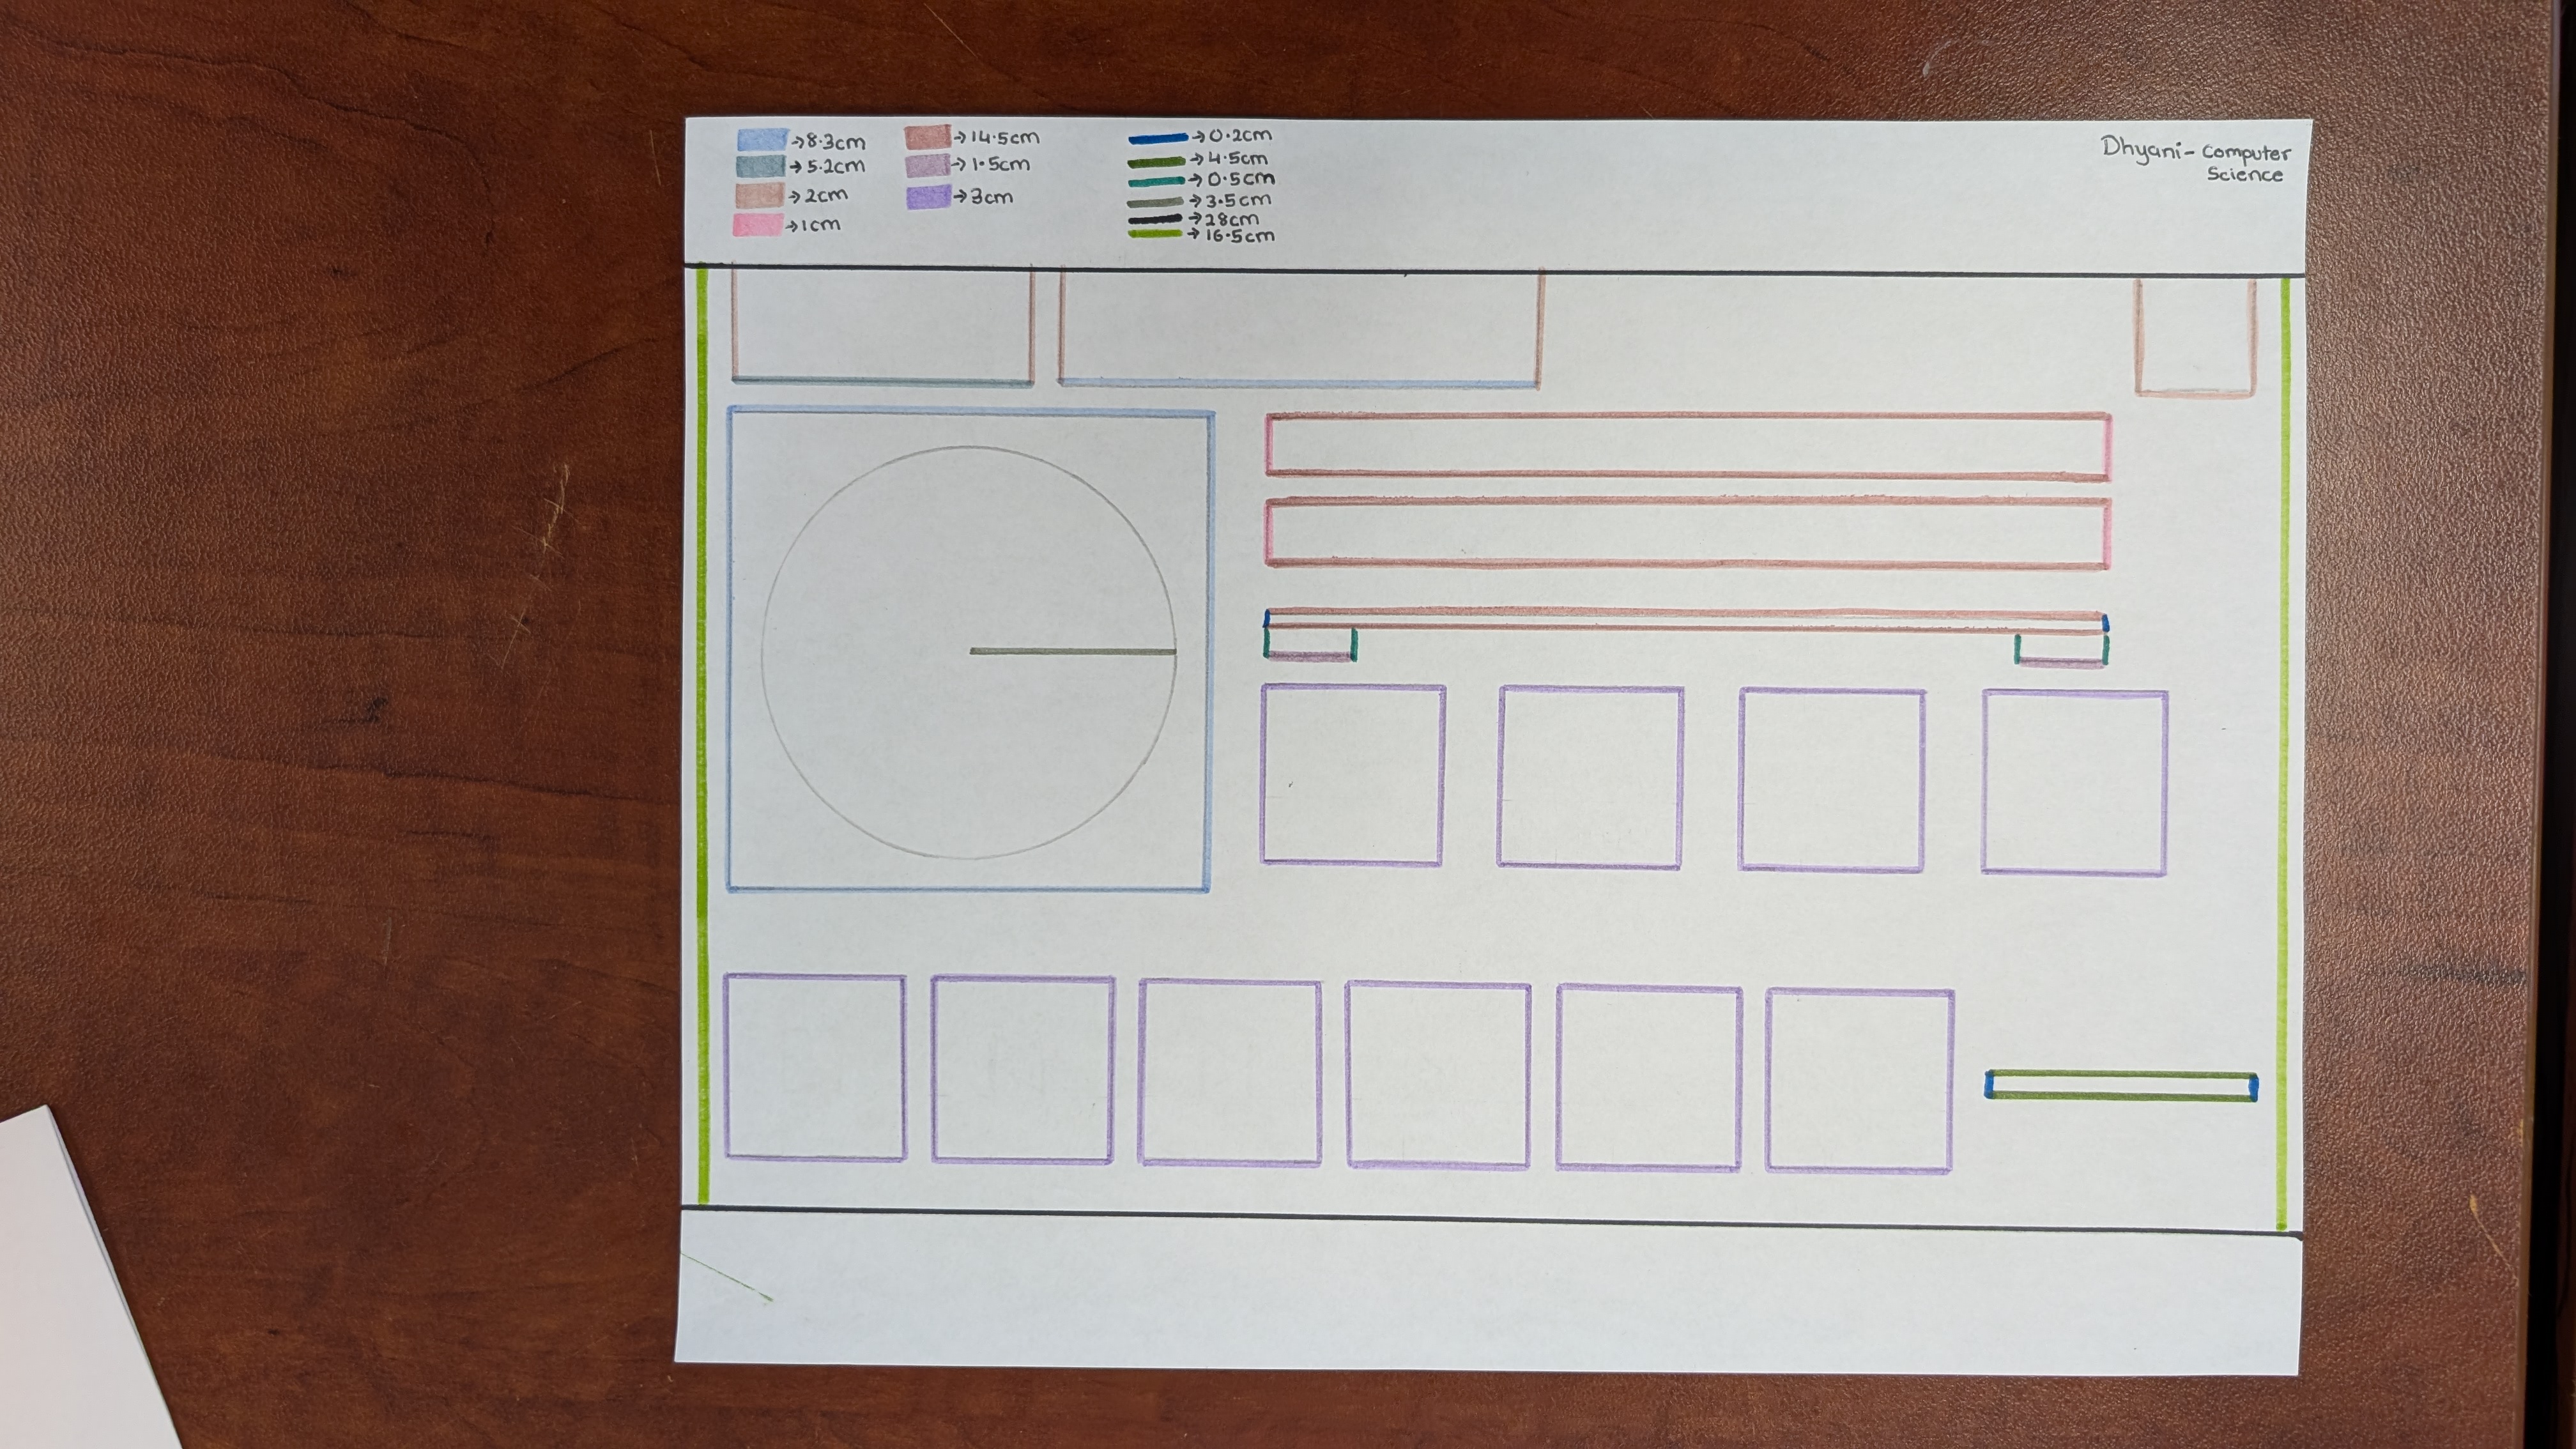 →8.3cm
→5.2cm
→2cm
→1cm
→14.5cm
→1.5cm
→3cm
→0.2cm
→4.5cm
→0.5cm
→3.5cm
→28cm
→16.5cm
Dhyani- Computer
Science